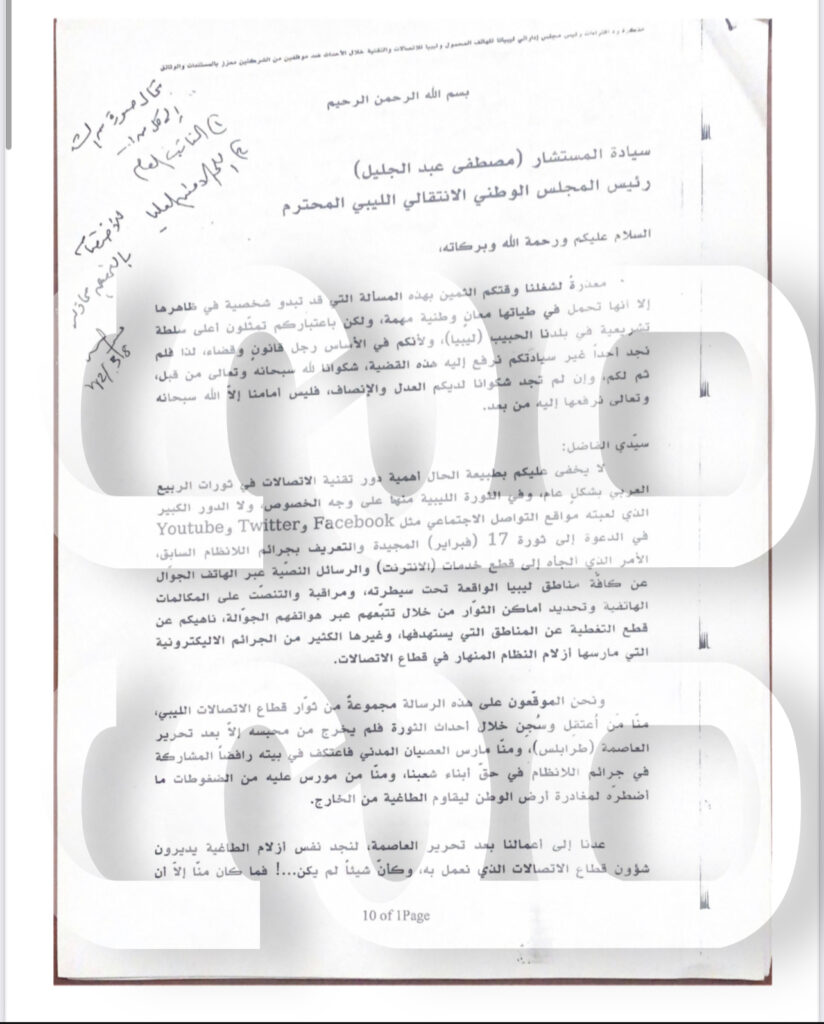 مذكرة رد افتراءات رئيس مجلس إدارتي ليبيانا للهاتف المحمول وليبيا للاتصالات والتقنية خلال الأحداث ضد موظفين من الشركتين معزز بالمستندات والوثائق
بسم الله الرحمن الرحيم
سيادة المستشار (مصطفى عبد الجليل)
رئيس المجلس الوطني الانتقالي الليبي المحترم
السلام عليكم ورحمة الله وبركاته،
معذرةً لشغلنا وقتكم الثمين بهذه المسألة التي قد تبدو شخصية في ظاهرها
إلا أنها تحمل في طياتها معانٍ وطنية مهمة، ولكن باعتباركم تمثّلون أعلى سلطة
تشريعية في بلدنا الحبيب (ليبيا)، ولأنكم في الأساس رجل قانونٍ وقضاء، لذا فلم
نجد أحداً غير سيادتكم نرفع إليه هذه القضية، شكوانا لله سبحانه وتعالى من قبل،
ثم لكم، وإن لم تجد شكوانا لديكم العدل والإنصاف، فليس أمامنا إلاّ الله سبحانه
وتعالى نرفعها إليه من بعد.
سيّدي الفاضل:
لا يخفى عليكم بطبيعة الحال أهمية دور تقنية الاتصالات في ثورات الربيع
العربي بشكلٍ عام، وفي الثورة الليبية منها على وجه الخصوص، ولا الدور الكبير
الذي لعبته مواقع التواصل الاجتماعي مثل Facebook وTwitter وYoutube
في الدعوة إلى ثورة 17 (فبراير) المجيدة والتعريف بجرائم اللانظام السابق،
الأمر الذي ألجأه إلى قطع خدمات (الانترنت) والرسائل النصّية عبر الهاتف الجوّال
عن كافّة مناطق ليبيا الواقعة تحت سيطرته، ومراقبة والتنصّت على المكالمات
الهاتفية وتحديد أماكن الثوّار من خلال تتبّعهم عبر هواتفهم الجوّالة، ناهيكم عن
قطع التغطية عن المناطق التي يستهدفها، وغيرها الكثير من الجرائم الاليكترونية
التي مارسها أزلام النظام المنهار في قطاع الاتصالات.
ونحن الموقّعون على هذه الرسالة مجموعةٌ من ثوّار قطاع الاتصالات الليبي،
منّا مَن أُعتقِل وسُجِن خلال أحداث الثورة فلم يخرج من محبسه إلاّ بعد تحرير
العاصمة (طرابلس)، ومنّا مارس العصيان المدني فاعتكف في بيته رافضاً المشاركة
في جرائم اللانظام في حقّ أبناء شعبنا، ومنّا من مورس عليه من الضغوطات ما
أضطرّه لمغادرة أرض الوطن ليقاوم الطاغية من الخارج.
عدنا إلى أعمالنا بعد تحرير العاصمة، لنجد نفس أزلام الطاغية يديرون
شؤون قطاع الاتصالات الذي نعمل به، وكأنّ شيئاً لم يكن...! فما كان منّا إلاّ أن
10 of 1Page